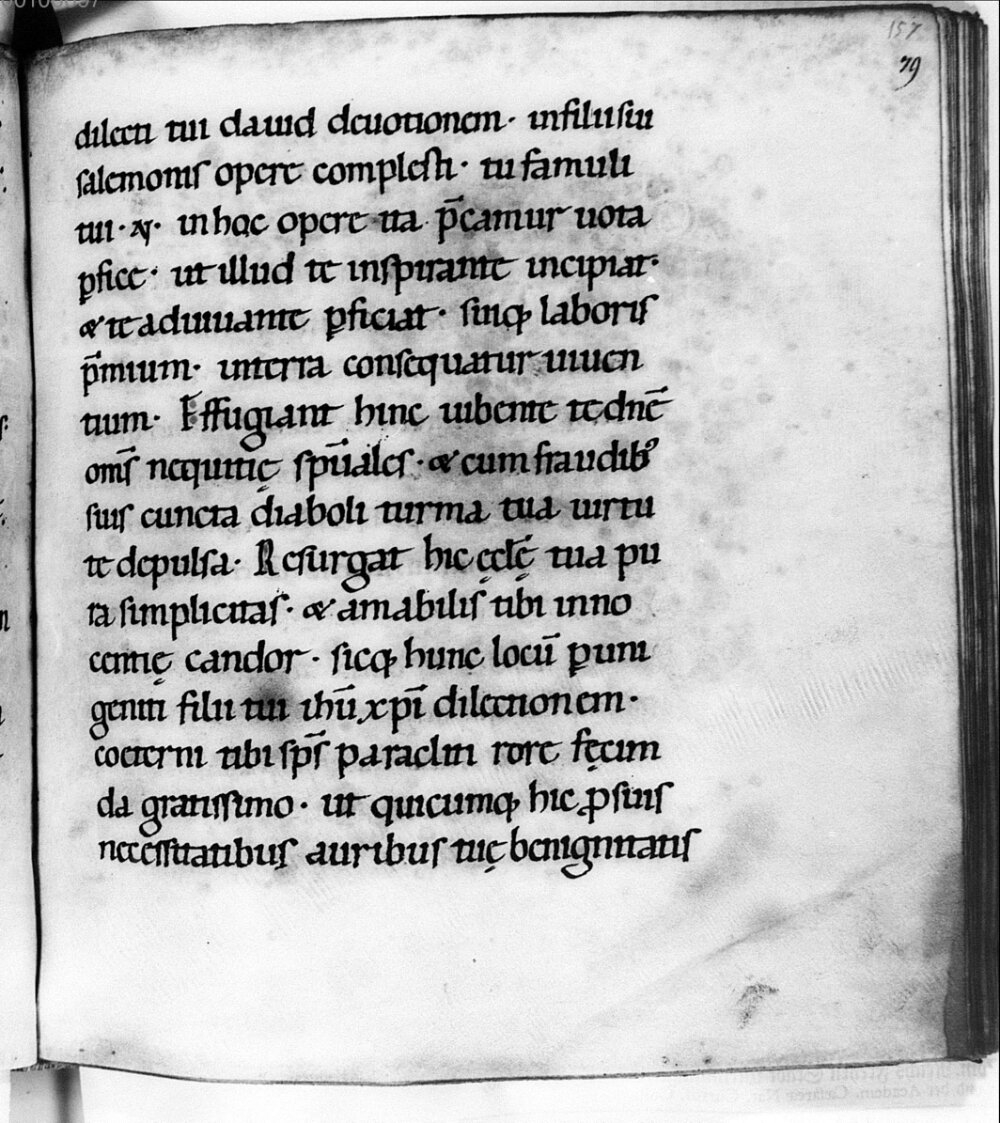 157
79
dilecti tui dauid deuotionem· in filii sui
salemonis opere complesti· tu famuli
tui·N· in hoc opere ita p̄camur uota
ꝑfice· ut illud te inspirante incipiat·
& te adiuuante ꝑficiat· sui qꝫ laboris
p̄mium· in terra consequatur uiuen
tium· Effugiant hinc iubente te dn̄e
om̄s nequitię spūales· & cum fraudibꝰ
suis cuncta diaboli turma tua uirtu
te depulsa· Resurgat hic ęclę̄ tua pu
ra simplicitas· & amabilis tibi inno
centię candor· sicqꝫ hunc locū ꝑ uni
geniti filii tui ihū xp̄i dilectionem·
coeterni tibi sp̄s paracliti rore fęcun
da gratissimo· ut quicumqꝫ hic ꝓ suis
necessitatibus auribus tuę benignitatis